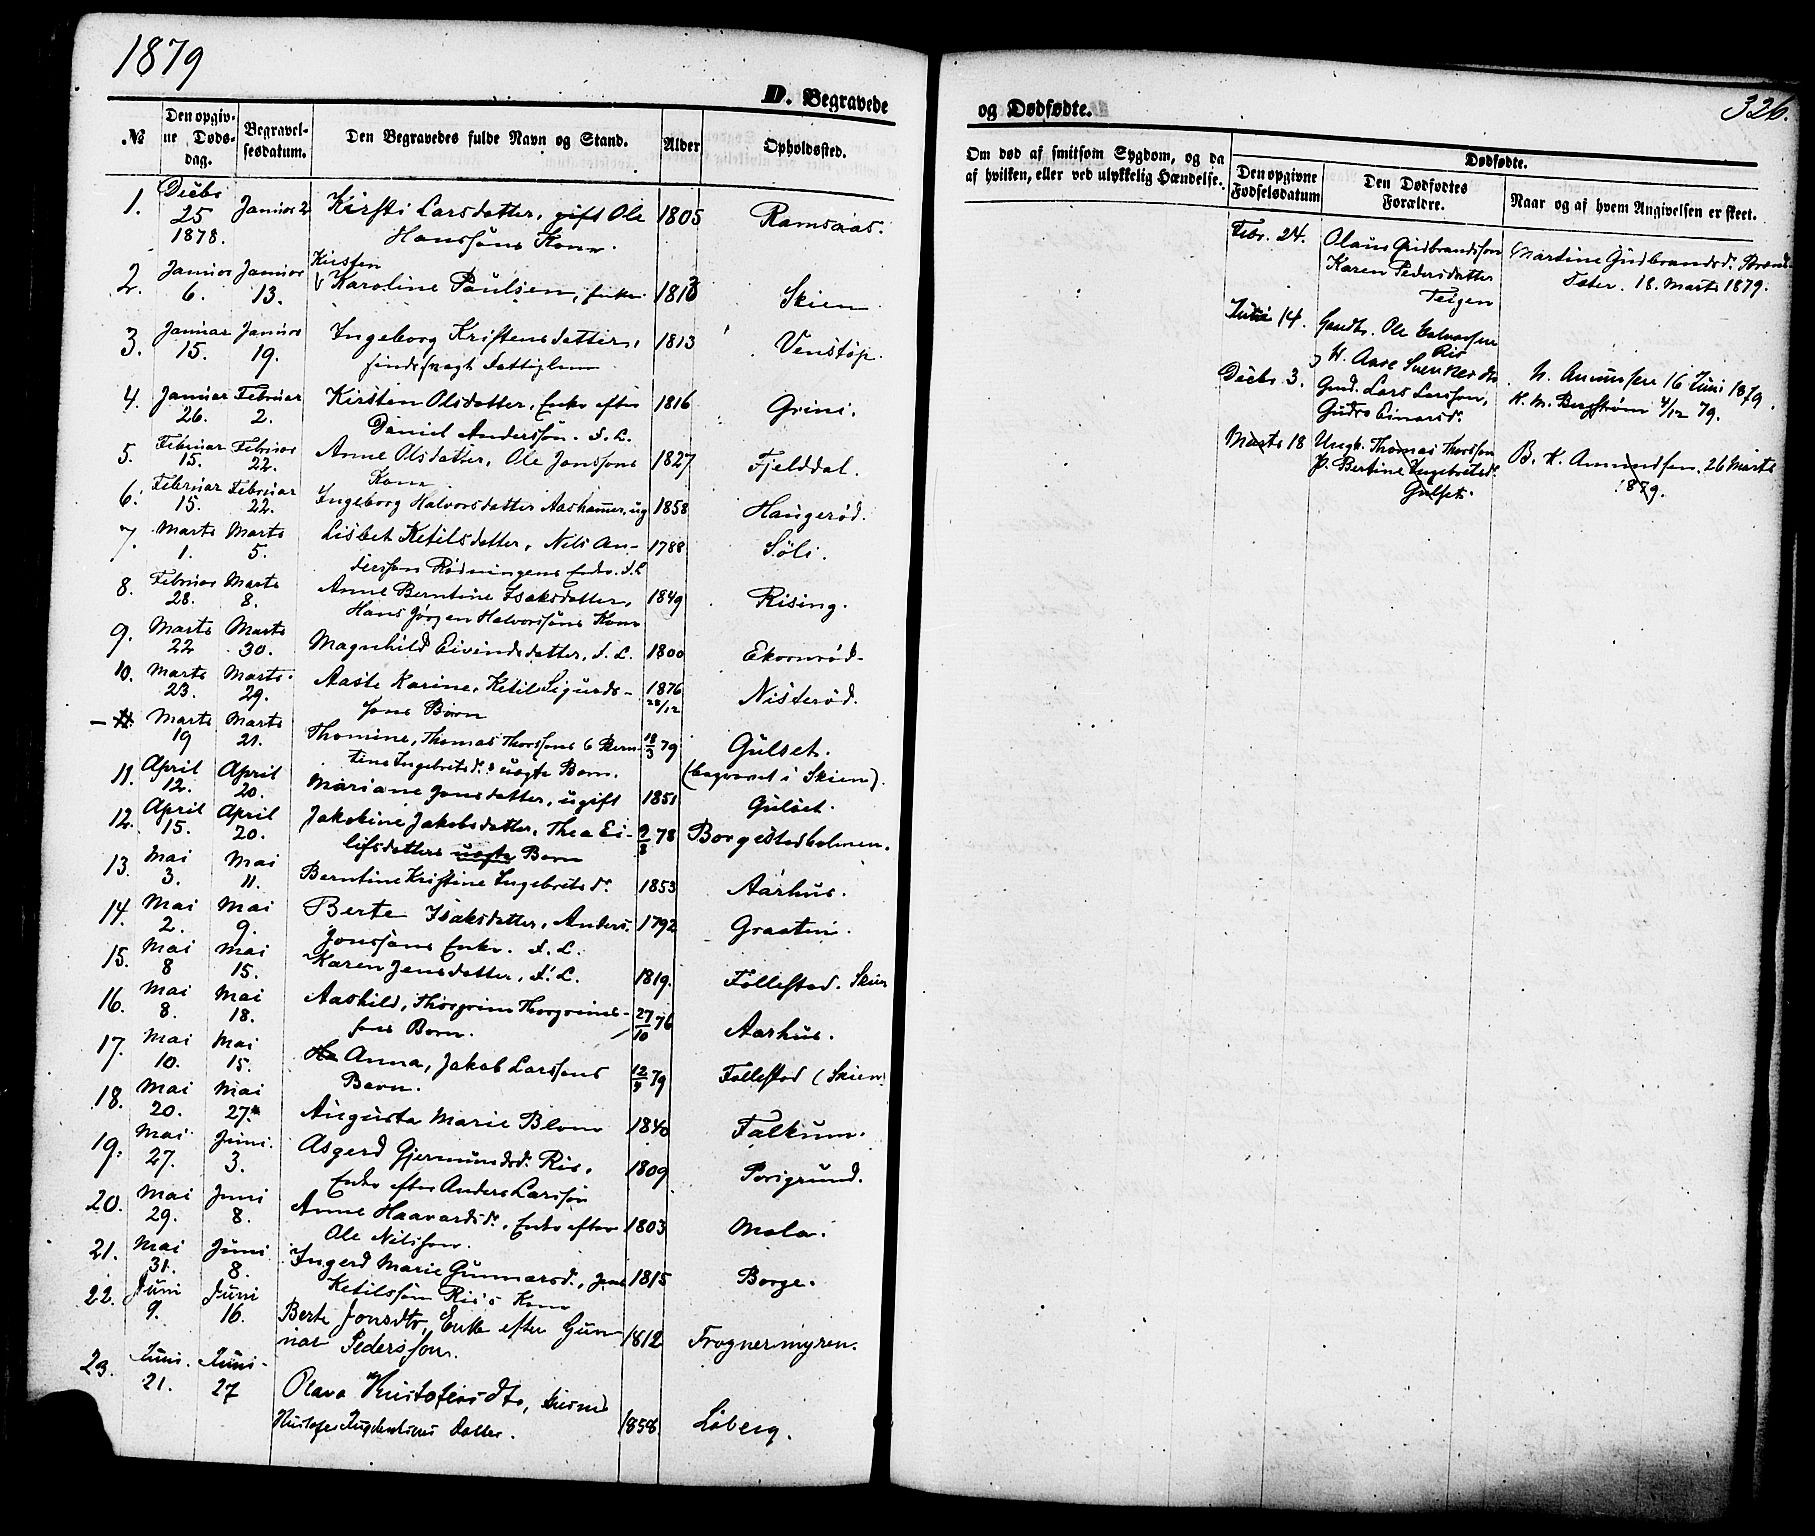 1879
D. Begravede
№
Den opgiv-
ne Døds-
dag.
Begravel-
sesdatum.
Den Begravedes fulde Navn og Stand.
Alder
Opholdssted.
1. Decbr 25 1878. Januar 2 Kirsti Larsdatter, gift Ole 1805 Ramsaas.
Hanssøns Kone.
Kirsten
2. Januar 6. Januar 13. Karoline Paulsen, Enke 1813 Skien
3. Januar 15. Januar 19. Ingeborg Kristensdatter, 1813 Venstøp.
sindssvagt Fattiglem
4. Januar 26. Februar 2. Kirsten Olsdatter, Enke efter 1816 Grini.
Daniel Anderssøn. F. L.
5. Februar 15. Februar 22. Anne Olsdatter, Ole Jonssøns 1827 Fjelddal.
Kone
6. Februar 15. Februar 22. Ingeborg Halvorsdatter Aashammer, ug 1858 Haugerød.
7. Marts 1. Marts 5. Lisbet Ketilsdatter, Nils An- 1788 Søli.
derssøn Rødningens Enke. F. L
8. Februar 28. Marts 8. Anne Berntine Isaksdatter, 1849 Rising.
Hans Jørgen Halvorssøns Kone
9. Marts 22 Marts 30. Magnhild Eivindsdatter, F. L. 1800 Ekornrød.
10. Marts 23. Marts 29. Aaste Karine, Ketil Sigurds- 1876 28/12 Nisterød.
søns Barn
- 11. Marts 19 Marts 21. Thomine, Thomas Thorssøns & Bern- 18/3 79 Gulset.
tine Ingebritsd.s uægte Barn. (begravet i Skien).
11. April 12. April 20. Mariane Jonsdatter, ugift 1851 Gulset.
12. April 15. April 20. Jakobine Jakobsdatter, Thea Ei- 9/8 78 Borgestadholmen.
lifsdatters uægte Barn
13. Mai 3. Mai 11. Berntine Kristine Ingebritsd. 1853 Aarhus.
14. Mai 2. Mai 9. Berte Isaksdatter, Anders 1792 Graaten.
Jonssøns Enke. F. L.
15. Mai 8 Mai 15. Karen Jensdatter, F. L. 1819. Follestad. Skien
16. Mai 8. Mai 18. Aashild, Thorgrim Thorgrims- 27/10 76 Aarhus.
søns Barn.
17. Mai 10. Mai 15. Ha Anna, Jakob Larssøns 12/3 79 Follestad (Skien)
Barn.
18. Mai 20. Mai 27. Augusta Marie Blom 1840 Falkum.
19. Mai 27. Juni 3. Asgerd Gjermundsd. Ris, 1809 Porsgrund.
Enke efter Anders Larssøn
20. Mai 29. Juni 8. Anne Haavardsd., Enke efter 1803 Mæla.
Ole Nilssøn.
21. Mai 31. Juni 8. Ingerd Marie Gunnarsd., Jens 1815 Borge.
Ketilssøn Ris's Kone
22. Juni 9. Juni 16. Berte Jonsdtr, Enke efter Gun- 1812 Frognermyren.
nar Pederssøn.
23. Juni 21. Juni 27 Olava Kristofersdtr,
Kristofer Datter. 1858. Liberg.
326.
og Dødfødte.
Om død af smitsom Sygdom, og da
af hvilken, eller ved ulykkelig Hændelse.
Dødfødte.
Den opgivne
Fødselsdatum
Den Dødfødtes
Forældre.
Naar og af hvem Angivelsen er skeet.
Febr. 24. Olaus Gudbrandssøn Martine Gudbrandsd.
Karen Pedersdatter 18. Marts 1879.
Teigen
Juni 14. Gaardbr. Ole Halvorsen
Ris
H. Aase N. Amundsen 16 Juni 1879.
Decbr. 3. Gmd. Lars Larssøn, K. M. Bergstrøm 4/12 79.
Gudro Einarsd.
Marts 18 Ungk. Thomas Thorssøn B. K. Amundsen, 26 Marts
P. Bertine Ingebritsd. 1879.
Gulset.